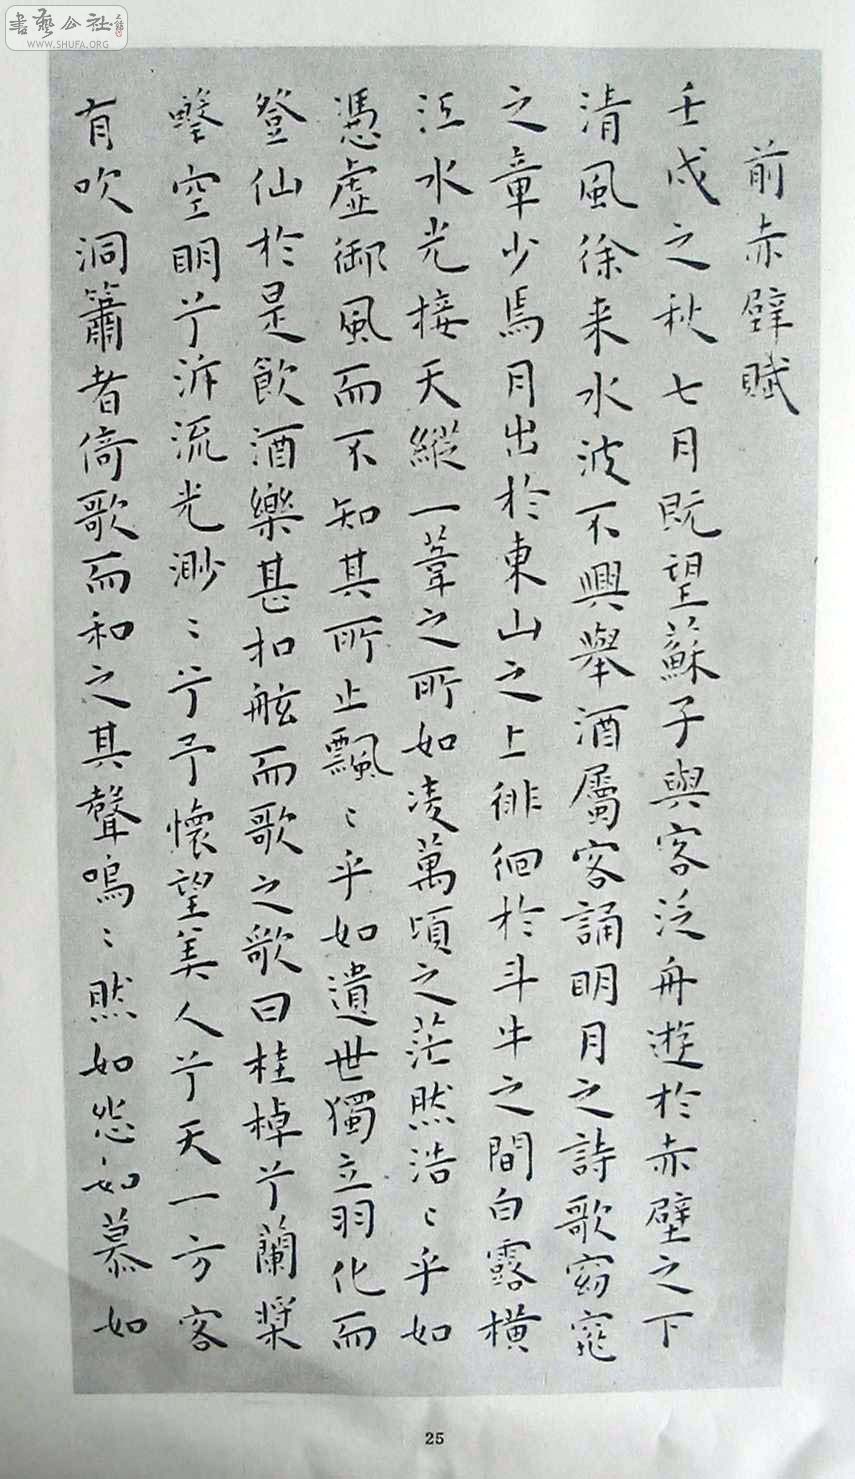 書藝公社
WWW.SHUFA.ORG
前赤壁賦
壬戌之秋七月既望蘇子與客泛舟遊於赤壁之下
清風徐来水波不興舉酒屬客誦明月之詩歌窈窕
之章少焉月出於東山之上徘徊於斗牛之間白露橫
江水光接天縱一葦之所如凌萬頃之茫然浩〻乎如
憑虛御風而不知其所止飄〻乎如遺世獨立羽化而
登仙於是飲酒樂甚扣舷而歌之歌曰桂棹兮蘭槳
擊空明兮泝流光渺〻兮予懷望美人兮天一方客
有吹洞簫者倚歌而和之其聲嗚〻然如怨如慕如
25